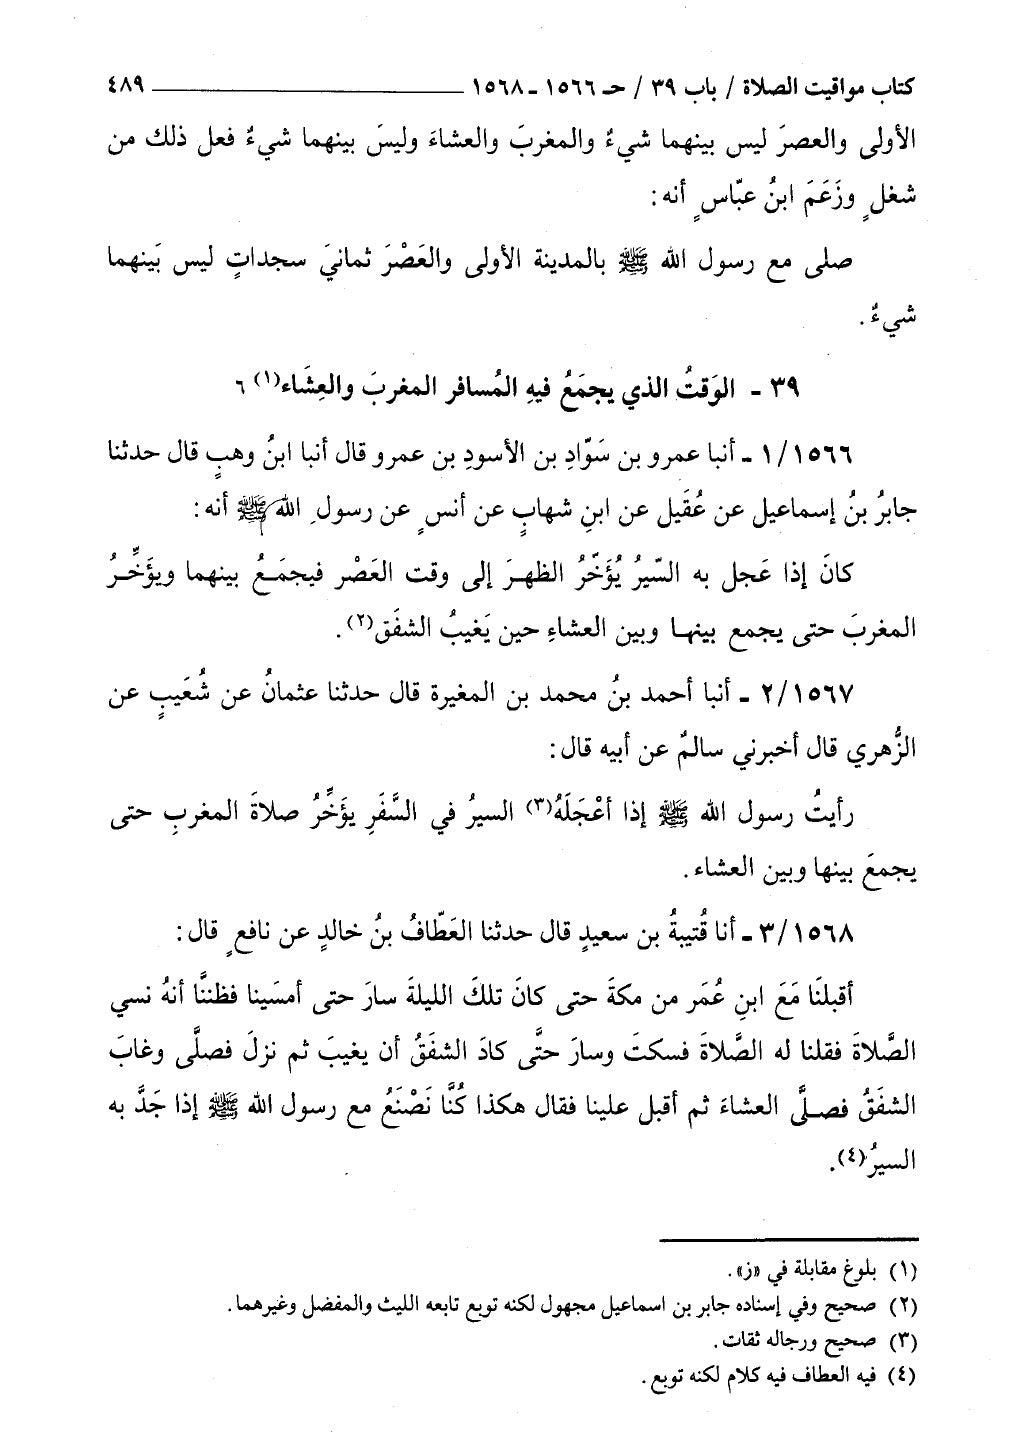 كتاب مواقيت الصلاة / باب ٣٩ / حـ ١٥٦٦ ـ ١٥٦٨ ٤٨٩
الأولى والعصرَ ليس بينهما شيءٌ والمغربَ والعشاءَ وليسَ بينهما شيءٌ فعل ذلك من
شغلٍ وزَعَمَ ابنُ عبّاسٍ أنه:
صلى مع رسول الله ﷺ بالمدينة الأولى والعَصْرَ ثمانيَ سجداتٍ ليس بَينهما
شيءٌ.
٣٩ ـ الوَقتُ الذي يجمَعُ فيهِ المُسافر المغربَ والعِشَاء(١) ٦
١/١٥٦٦ ـ أنبا عمرو بن سَوّادِ بن الأسودِ بن عمرو قال أنبا ابنُ وهبٍ قال حدثنا
جابرُ بنُ إسماعيل عن عُقَيل عن ابنِ شهابٍ عن أنسٍ عن رسولِ الله ﷺ أنه:
كانَ إذا عَجل به السّيرُ يُؤَخّرُ الظهرَ إلى وقت العَصْر فيجمَعُ بينهما ويؤَخِّرُ
المغربَ حتى يجمع بينها وبين العشاءِ حين يَغيبُ الشفَق(٢).
٢/١٥٦٧ ـ أنبا أحمد بنُ محمد بن المغيرة قال حدثنا عثمانُ عن شُعَيبٍ عن
الزُّهري قال أخبرني سالمٌ عن أبيه قال:
رأيتُ رسول الله ﷺ إذا أعْجَلَهُ(٣) السيرُ في السَّفَرِ يؤَخِّرُ صلاةَ المغربِ حتى
يجمعَ بينها وبين العشاء.
٣/١٥٦٨ ـ أنا قُتيبةُ بن سعيدٍ قال حدثنا العَطّافُ بنُ خالدٍ عن نافعٍ قال:
أقبلنَا مَعَ ابنِ عُمَر من مكةَ حتى كانَ تلكَ الليلةَ سارَ حتى أمسَينا فظننَّا أنهُ نسي
الصَّلاةَ فقلنا له الصَّلاةَ فسكتَ وسارَ حتَّى كادَ الشفَقُ أن يغيبَ ثم نزلَ فصلَّى وغابَ
الشفَقُ فصلَّى العشاءَ ثم أقبل علينا فقال هكذا كُنَّا نَصْنَعُ مع رسول الله ﷺ إذا جَدَّ به
السيرُ(٤).
(١) بلوغ مقابلة في «ز».
(٢) صحيح وفي إسناده جابر بن اسماعيل مجهول لكنه توبع تابعه الليث والمفضل وغيرهما.
(٣) صحيح ورجاله ثقات.
(٤) فيه العطاف فيه كلام لكنه توبع.